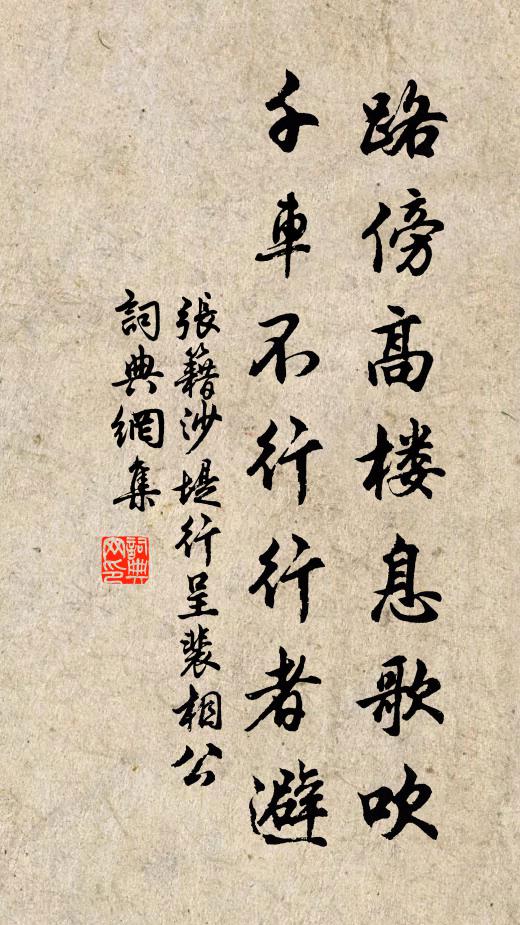 路傍高楼息歌吹
千車不行行者避
張籍沙堤行呈裴相公
詞典網集
詞典网印